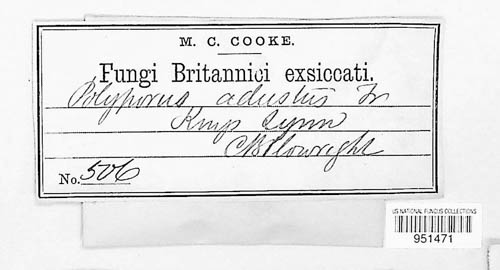 M. C. COOKE.
Fungi Britannici exsiccati.
Polyporus adustus Fr
Kings Lynn
CBPlowright
No. 506
US NATIONAL FUNGUS COLLECTIONS
951471